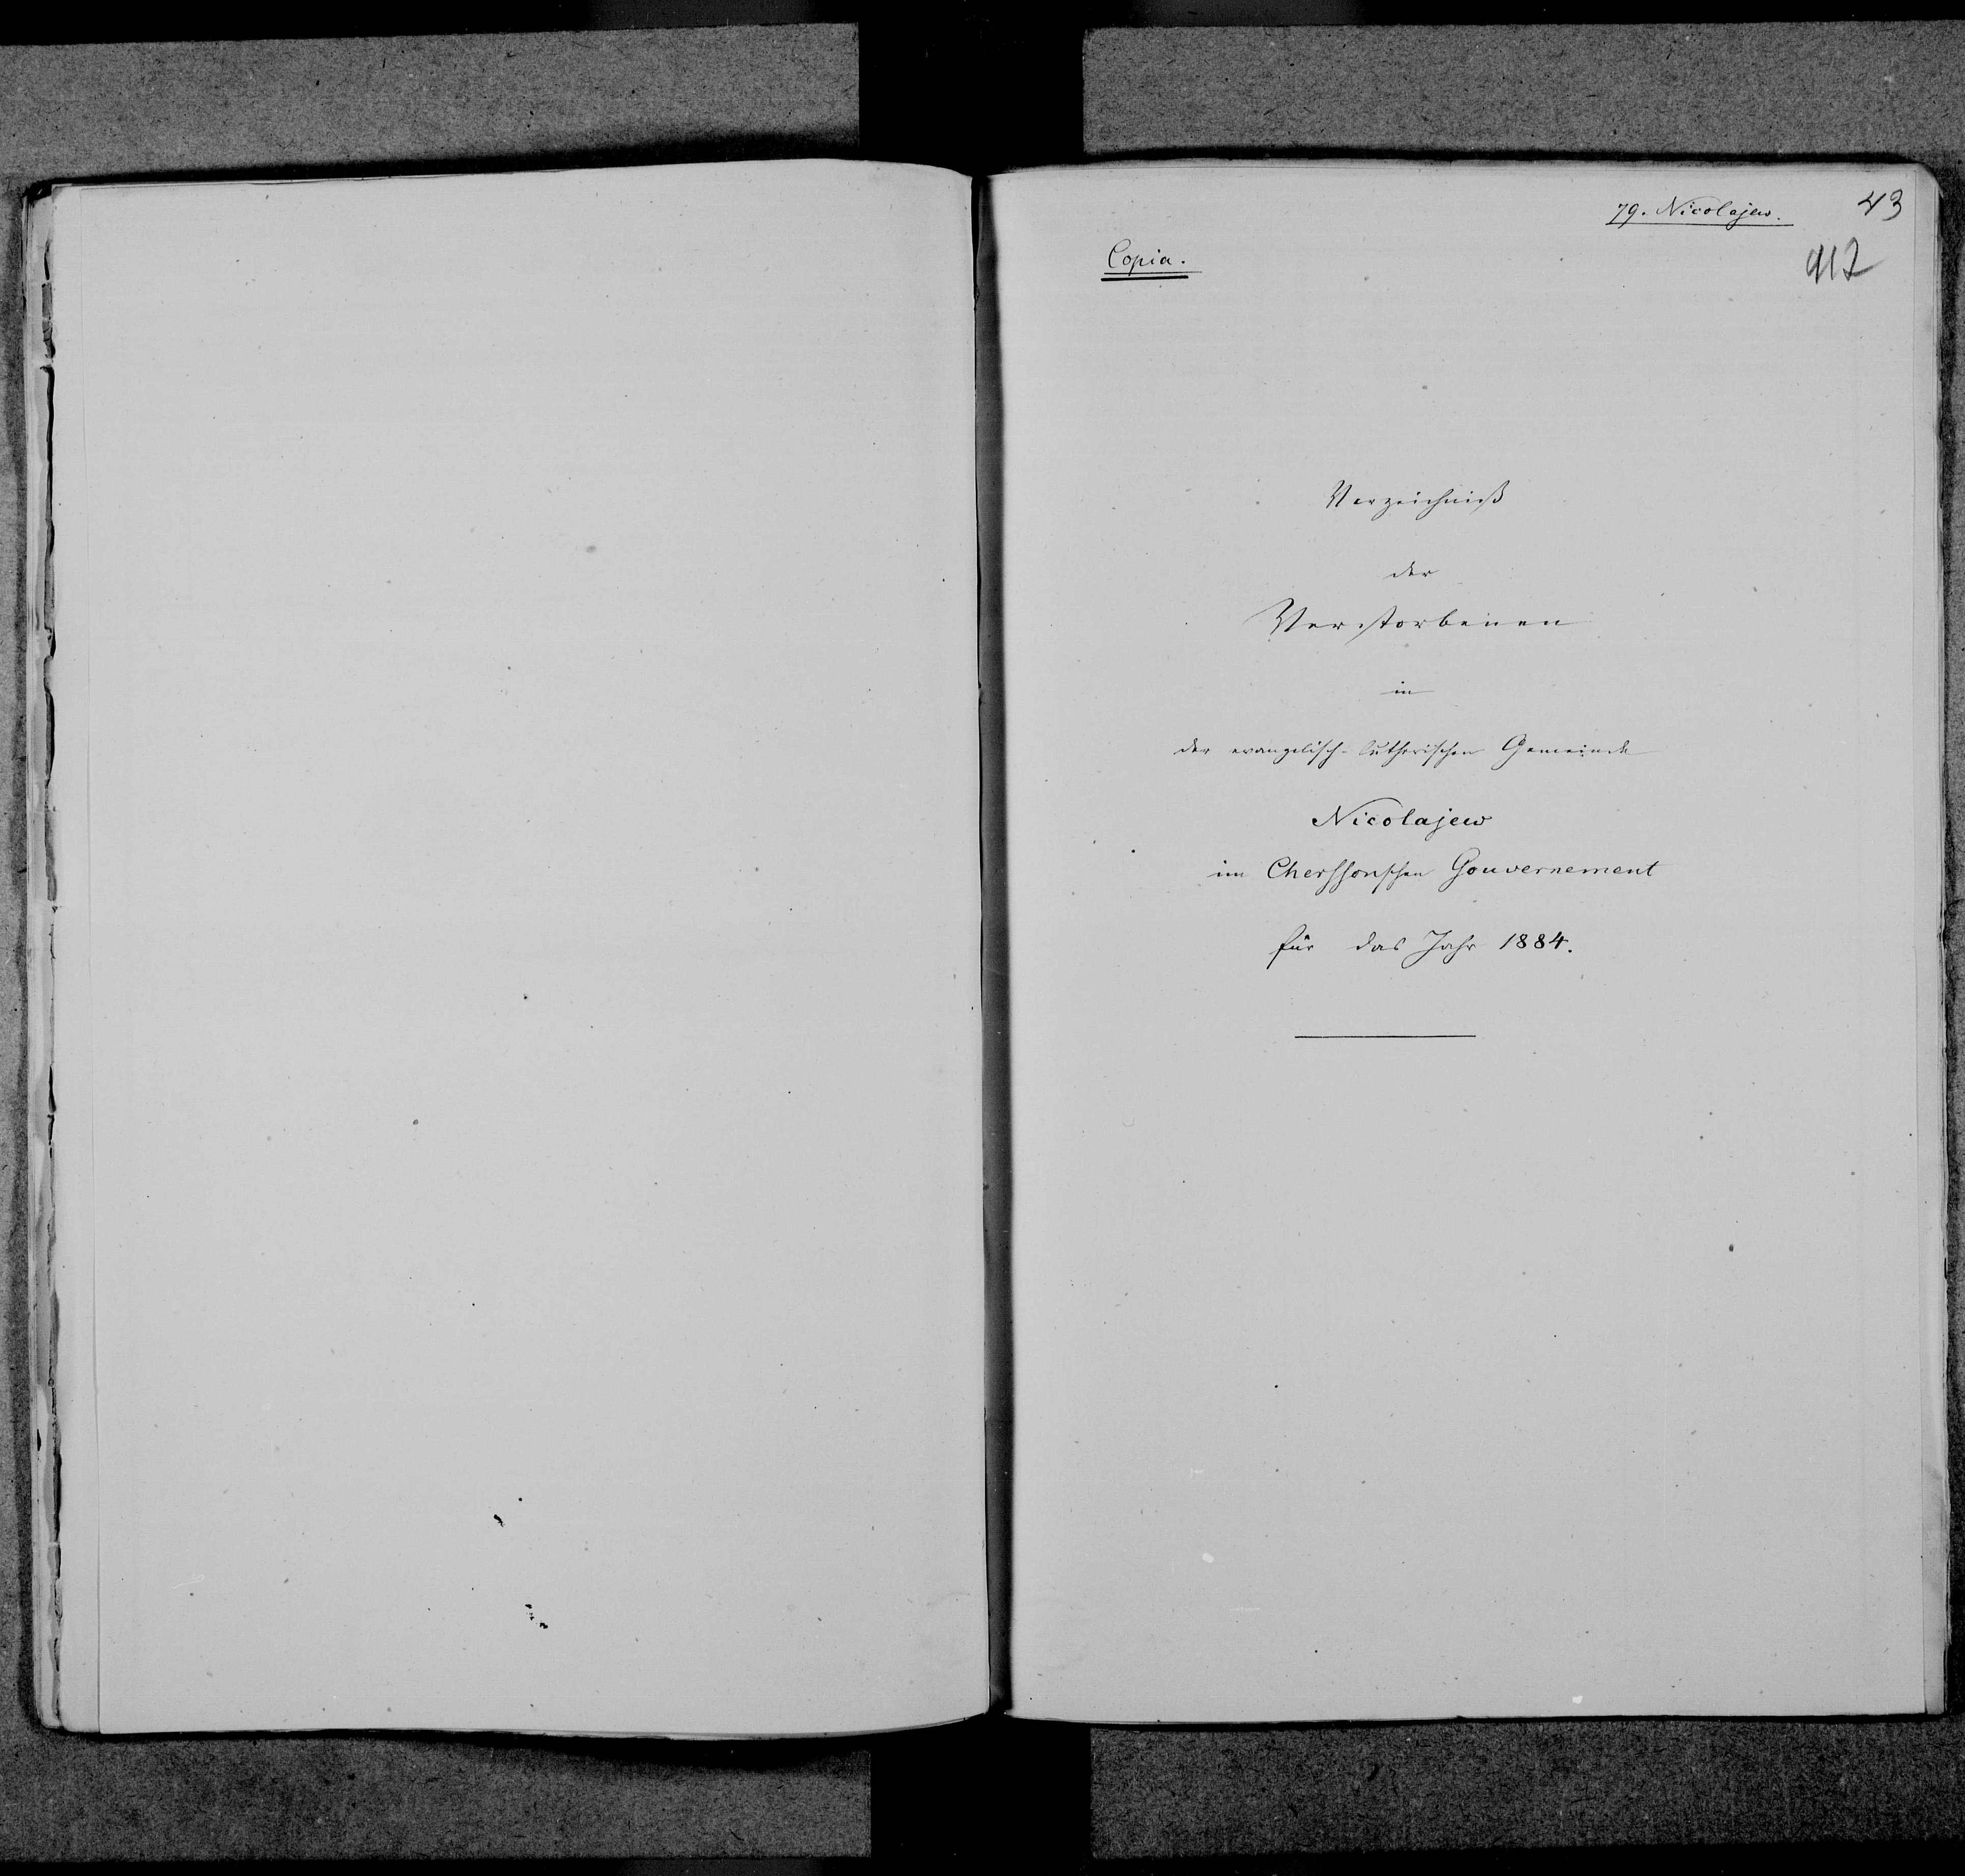 79. Nicolajew.
43
Copia.
912
Verzeichniß
der
Verstorbenen
in
der evangelisch-lutherischen Gemeinde
Nicolajew
im Cherssonschen Gouvernement
für das Jahr 1884.